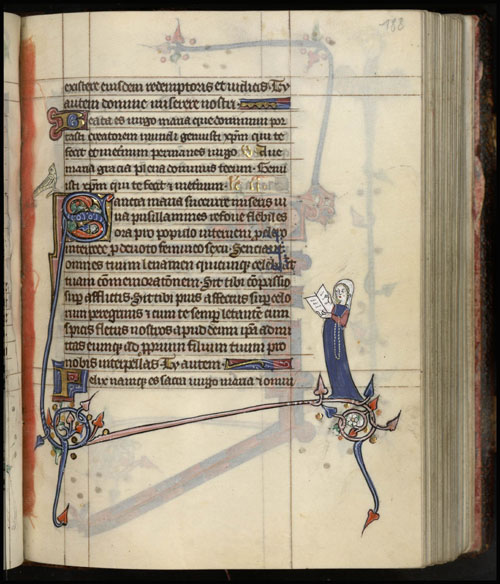 188
existere eiusdem redemptoris et Ty
autem domine miserere nostri
Beata es uirgo maria que dominum por
tasti creatorem mundi genuisti xp̄m qui te
fecit et in eternum permanes uirgo Aue
maria gracia plena dominus tecum. Genu
isti xp̄m qui te fecit ⁊ in eternum.
Sancta maria succurre miseris iu
ua pusillanimes refoue flebiles
ora pro populo interueni p̄ clero
intercede p̄ deuoto femineo sexu. Senciant
omnes tuum leuamen quicumque celebrant
tuam commemorationem. Sit tibi compassio
sup̄ afflictis. Sit tibi pius affectus sup̄ celo
rum peregrinis ⁊ cum te semper letantem cum
spicis fletus nostros apud deum
ad proprium filium tuum pro
nobis interpellas. Ty autem.
Felix namque es sacra uirgo maria ⁊ omni